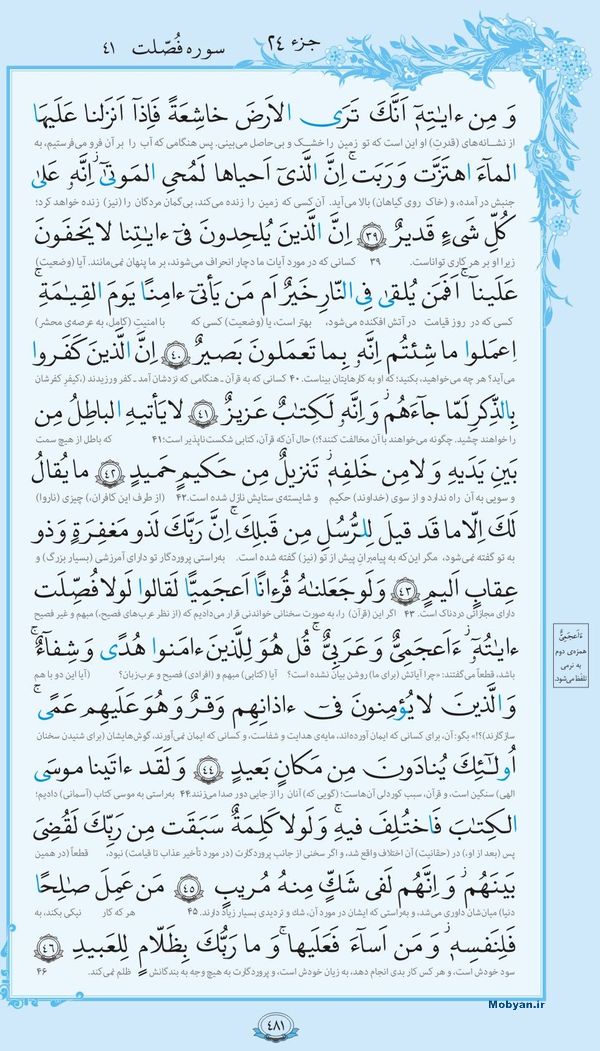 جزء ۲۴ سوره فُصّلت ۴۱
وَ مِن ءایٰتِهٖٓ اَنَّكَ تَرَی الاَرضَ خاشِعَةً فَاِذآ اَنزَلنا عَلَیهَا
از نشانه‌های (قدرت) او این است که تو زمین را خشک و بی‌حاصل می‌بینی. پس هنگامی که آب را بر آن فرو می‌فرستیم، به
المآءَ اهتَزَّت وَ رَبَت ۚ اِنَّ الَّذیٓ اَحیاها لَمُحیِ المَوتیٰٓ ۚ اِنَّهٗ عَلیٰ
جنبش در آمده، و (خاک روی گیاهان) بالا می‌آید. آن کسی که زمین را زنده می‌کند، بی‌گمان مردگان را (نیز) زنده خواهد کرد؛
كُلِّ شَیءٍ قَدیرٌ ﴿۳۹﴾ اِنَّ الَّذینَ یُلحِدونَ فیٓ ءایٰتِنا لا یَخفَونَ
زیرا او بر هر کاری تواناست. ۳۹ کسانی که در مورد آیات ما دچار انحراف می‌شوند، بر ما پنهان نمی‌مانند. آیا (وضعیت)
عَلَینآ ۗ اَفَمَن یُلقیٰ فِی النّارِ خَیرٌ اَم مَن یَأتیٓ ءامِنًا یَومَ القِیٰمَةِ ۚ
کسی که در روز قیامت در آتش افکنده می‌شود، بهتر است، یا (وضعیت) کسی که با امنیت (کامل، به عرصه‌ی محشر)
اِعمَلوا ما شِئتُم اِنَّهٗ بِما تَعمَلونَ بَصیرٌ ﴿۴۰﴾ اِنَّ الَّذینَ كَفَروا
می‌آید؟ هر چه می‌خواهید، بکنید؛ که او به کارهایتان بیناست. ۴۰ کسانی که به قرآن ـ هنگامی که نزدشان آمد ـ کفر ورزیدند (، کیفر کفرشان
بِالذِّكرِ لَمّا جآءَهُم ۖ وَ اِنَّهٗ لَكِتٰبٌ عَزیزٌ ﴿۴۱﴾ لا یَأتیهِ الباطِلُ مِن
را خواهند چشید. چگونه می‌خواهند با آن مخالفت کنند؟!) حال آن‌که قرآن، کتابی شکست‌ناپذیر است؛ ۴۱ که باطل از هیچ سمت
بَینِ یَدَیهِ وَ لا مِن خَلفِهٖ ۖ تَنزیلٌ مِن حَكیمٍ حَمیدٍ ﴿۴۲﴾ ما یُقالُ
و سویی به آن راه ندارد و از سوی (خداوند) حکیم و شایسته‌ی ستایش نازل شده است. ۴۲ (از طرف این کافران،) چیزی (ناروا)
لَكَ اِلّا ما قَد قیلَ لِلرُّسُلِ مِن قَبلِكَ ۚ اِنَّ رَبَّكَ لَذو مَغفِرَةٍ وَ ذو
به تو گفته نمی‌شود، مگر این‌که به پیامبران پیش از تو (نیز) گفته شده است. به‌راستی پروردگار تو دارای آمرزشی (بسیار بزرگ) و
عِقابٍ اَلیمٍ ﴿۴۳﴾ وَ لَو جَعَلنٰهُ قُرءانًا اَعجَمِیًّا لَقالوا لَولا فُصِّلَت
دارای مجازاتی دردناک است. ۴۳ اگر این (قرآن) را، به صورت سخنانی خواندنی قرار می‌دادیم که (از نظر عرب‌های فصیح،) مبهم و غیر فصیح
ءایٰتُهٗٓ ۖ ءَاَعجَمِیٌّ وَ عَرَبِیٌّ ۗ قُل هُوَ لِلَّذینَ ءامَنوا هُدًی وَ شِفآءٌ ۖ
باشد، قطعاً می‌گفتند: «چرا آیاتش (برای ما) روشن بیان نشده است؟ آیا (کتابی) مبهم و (افرادی) فصیح و عرب‌زبان؟ (آیا این دو با هم
وَ الَّذینَ لا یُؤمِنونَ فیٓ ءاذانِهِم وَقرٌ وَ هُوَ عَلَیهِم عَمًی ۚ
سازگارند)؟!» بگو: آن، برای کسانی که ایمان آورده‌اند، مایه‌ی هدایت و شفاست، و کسانی که ایمان نمی‌آورند، گوش‌هایشان (برای شنیدن سخنان
اُولٰٓئِكَ یُنادَونَ مِن مَكانٍ بَعیدٍ ﴿۴۴﴾ وَ لَقَد ءاتَینا موسَی
الهی) سنگین است، و قرآن، سبب کوردلی آن‌هاست؛ (گویی که) آنان را از جایی دور صدا می‌زنند. ۴۴ به‌راستی به موسی کتاب (آسمانی) دادیم؛
الكِتٰبَ فَاختُلِفَ فیهِ ۗ وَ لَولا كَلِمَةٌ سَبَقَت مِن رَبِّكَ لَقُضِیَ
پس (بعد از او،) در (حقانیت) آن اختلاف واقع شد، و اگر سخنی از جانب پروردگارت (در مورد تأخیر عذاب تا قیامت) نبود، قطعاً (در همین
بَینَهُم ۚ وَ اِنَّهُم لَفی شَكٍّ مِنهُ مُریبٍ ﴿۴۵﴾ مَن عَمِلَ صٰلِحًا
دنیا) میان‌شان داوری می‌شد، و به‌راستی که ایشان در مورد آن، شک و تردیدی بسیار زیاد دارند. ۴۵ هر که کار نیکی بکند، به
فَلِنَفسِهٖ ۖ وَ مَن اَسآءَ فَعَلَیها ۗ وَ ما رَبُّكَ بِظَلّامٍ لِلعَبیدِ ﴿۴۶﴾
سود خودش است، و هر کس کار بدی انجام دهد، به زیان خودش است، و پروردگارت به هیچ وجه به بندگانش ظلم نمی‌کند. ۴۶
ءَاَعجَمِیٌّ
همزه‌ی دوم
به نرمی
تلفظ می‌شود.
Mobyan.ir
۴۸۱